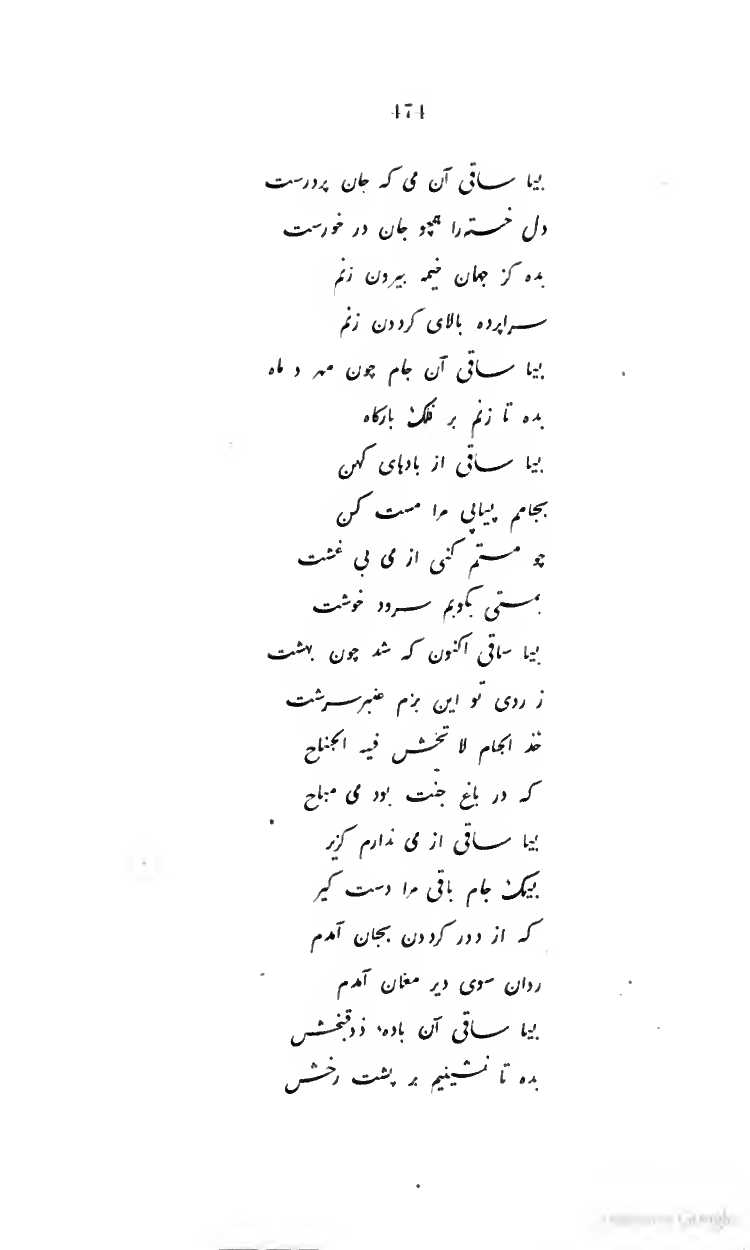 474
بیا ساقی آن می که جان پرورست
دل خسته‌را همچو جان در خورست
بده کز جهان خیمه بیرون زنم
سراپرده بالای کردون زنم
بیا ساقی آن جام چون مهر و ماه
بده تا زنم بر فلک بارکاه
بیا ساقی از بادهای کهن
بجامم پیاپی مرا مست کن
چو مستم کنی از می بی غشت
بمستی بکویم سرود خوشت
بیا ساقی اکنون که شد چون بهشت
ز روی تو این بزم عنبرسرشت
خذ الجام لا تخش فیه الجناح
که در باغ جنّت بود می مباح
بیا ساقی از می ندارم کزیر
بیک جام باقی مرا دست کیر
که از دور کردون بجان آمدم
روان سوی دیر مغان آمدم
بیا ساقی آن بادهٔ ذوقبخش
بده تا نشینیم بر پشت رخش
Google